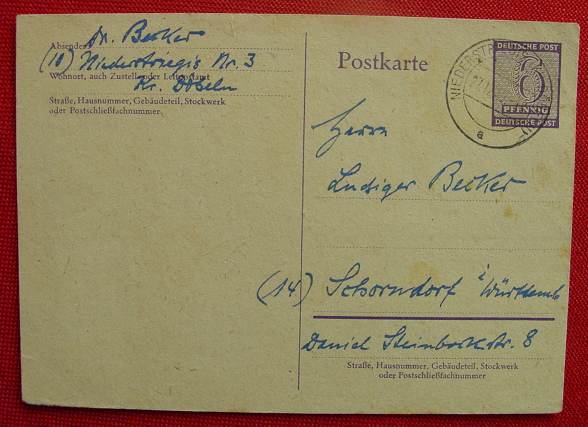 Absender: Dr. Becker
(10) Niederstriegis Nr. 3
Wohnort, auch Zustell- oder Leitpostamt
Kr. Döbeln
Straße, Hausnummer, Gebäudeteil, Stockwerk
oder Postschließfachnummer
Postkarte
DEUTSCHE POST
6
PFENNIG
DEUTSCHE POST
NIEDERST
a
Herrn
Becker
(14) Schorndorf i Württemb
Daniel Steinbockstr. 8
Straße, Hausnummer, Gebäudeteil, Stockwerk
oder Postschließfachnummer